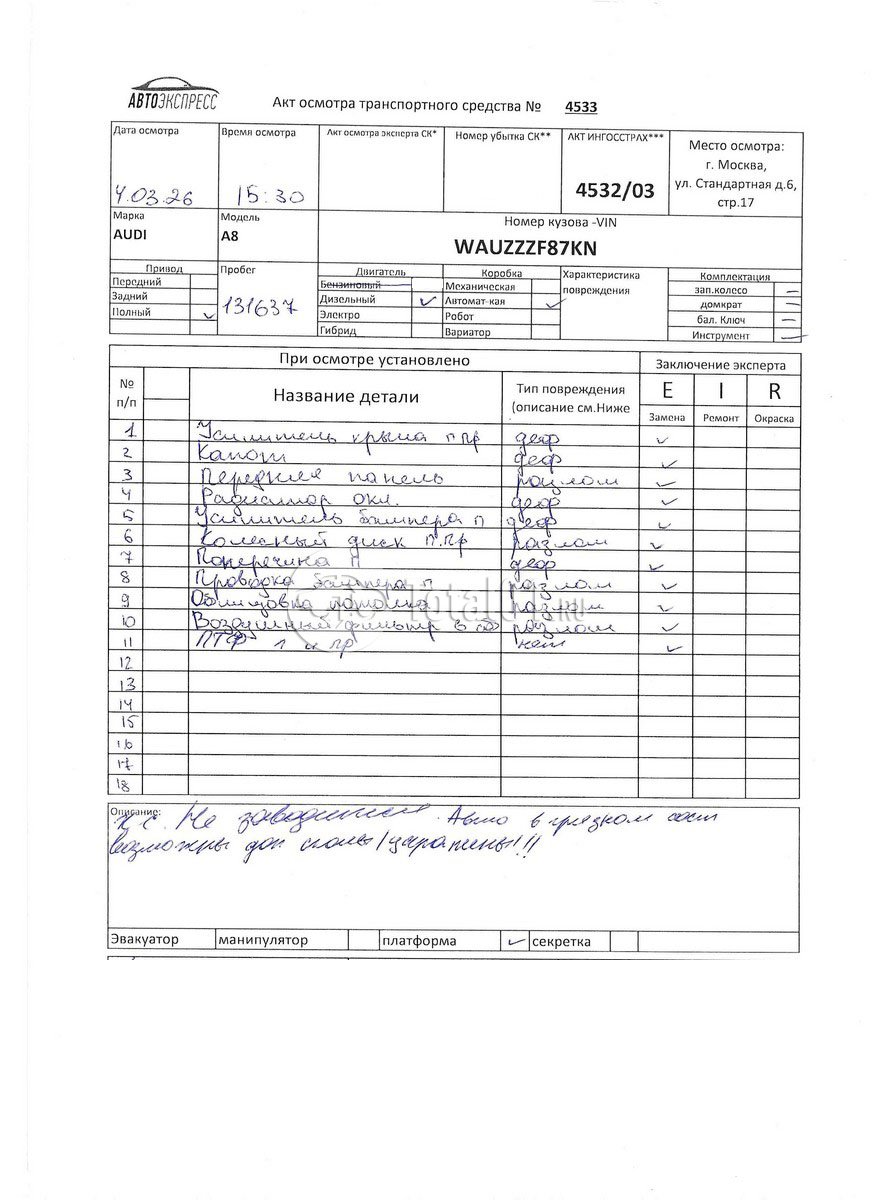 АВТОЭКСПРЕСС
Акт осмотра транспортного средства № 4533
Дата осмотра
Время осмотра
Акт осмотра эксперта СК*
Номер убытка СК**
АКТ ИНГОССТРАХ***
Место осмотра:
г. Москва,
ул. Стандартная д.6,
стр.17
4.03.26
15:30
4532/03
Марка
Модель
Номер кузова -VIN
AUDI
A8
WAUZZZF87KN
Привод
Пробег
Двигатель
Коробка
Характеристика
повреждения
Комплектация
Передний
Бензиновый
Механическая
зап.колесо
Задний
Дизельный
Автомат-кая
домкрат
Полный
131637
Электро
Робот
бал. Ключ
Гибрид
Вариатор
Инструмент
При осмотре установлено
Заключение эксперта
№
п/п
Название детали
Тип повреждения
(описание см.Ниже
E I R
Замена Ремонт Окраска
1 Усилитель крыла п пр деф
2 Капот деф
3 Передняя панель разлом
4 Радиатор охл. деф
5 Усилитель бампера п деф
6 Колесный диск п.пр разлом
7 Поперечина п деф
8 Проводка бампера п разлом
9 Облицовка разлом
10 Воздушный фильтр в сб разлом
11 ПТФ л и пр нет
12
13
14
15
16
17
18
TotalCars.RU
Описание:
Не заводится. Авто в грязном сост
возможны доп сколы/царапины!!!
Эвакуатор манипулятор платформа секретка